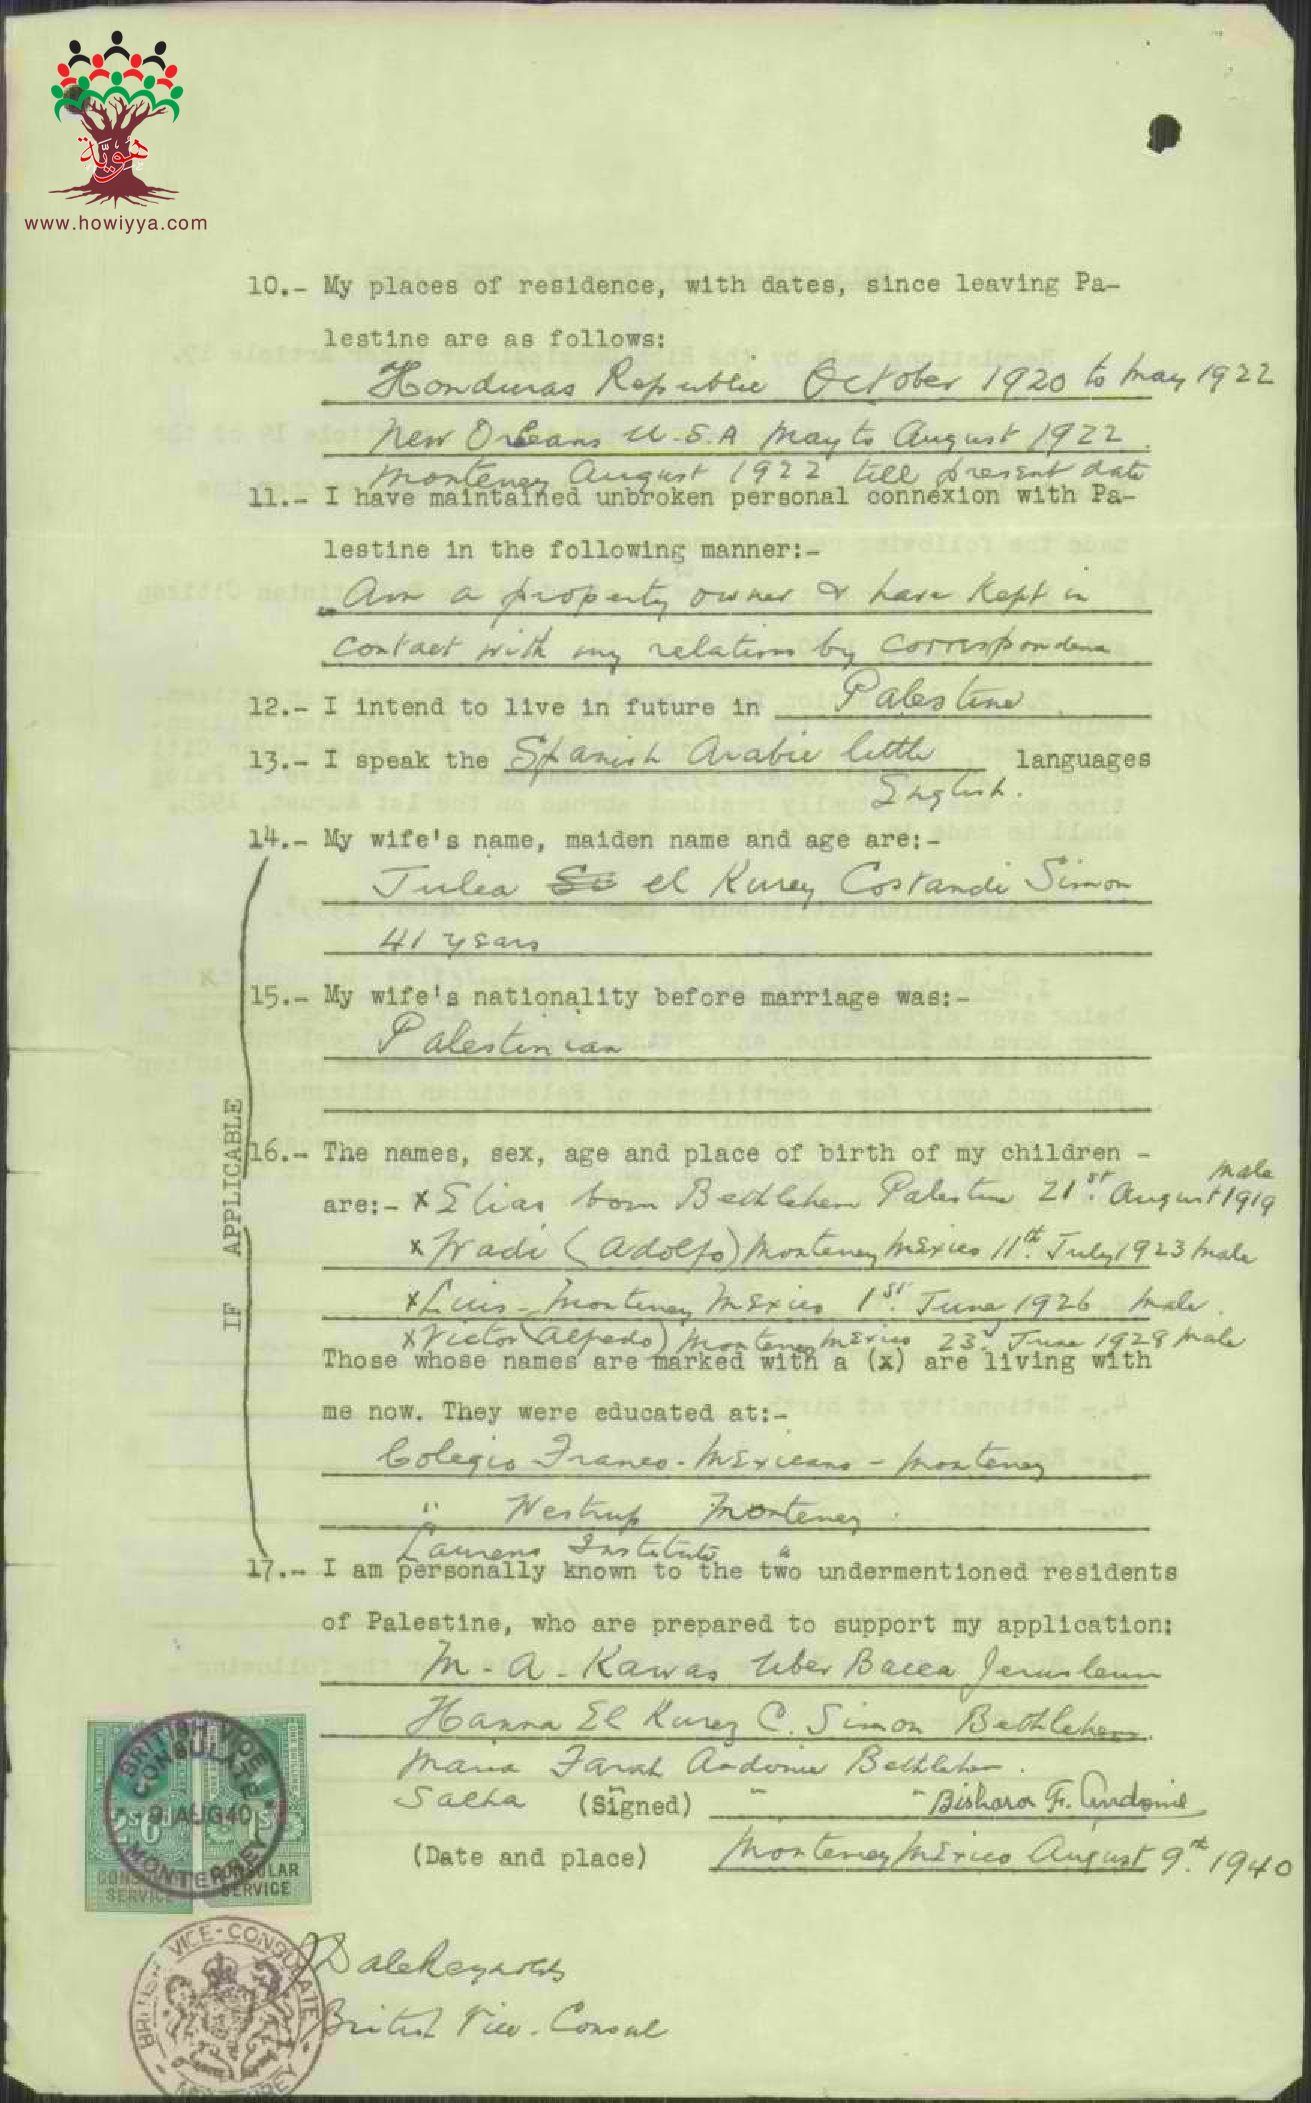 هويّة
www.howiyya.com
10.- My places of residence, with dates, since leaving Pa-
lestine are as follows:
Honduras Republic October 1920 to May 1922
New Orleans U.S.A May to August 1922.
Monterrey August 1922 till present date
11.- I have maintained unbroken personal connexion with Pa-
lestine in the following manner:-
Am a property owner & have kept in
contact with my relations by correspondence
12.- I intend to live in future in Palestine.
13.- I speak the Spanish Arabic little languages
English.
14.- My wife's name, maiden name and age are:-
Julea el Kurey Costandi Simon
41 years
15.- My wife's nationality before marriage was:-
Palestinian
IF APPLICABLE
16.- The names, sex, age and place of birth of my children -
male
are:- x Elias born Bethlehem Palestine 21st. August 1919
x Wadi (Adolfo) Monterrey Mexico 11th. July 1923 male
x Luis - Monterrey Mexico 1st. June 1926 male.
x Victor (Alfredo) Monterrey Mexico 23d. June 1928 male
Those whose names are marked with a (x) are living with
me now. They were educated at:-
Colegio Franco-Mexicano - Monterrey
" Westrup Monterrey.
Laurens Institute "
17.- I am personally known to the two undermentioned residents
of Palestine, who are prepared to support my application:
M. A. Kawas Jerusalem
Hanna El Kurey C. Simon Bethlehem.
Maria Farah Andonie Bethlehem.
Salha " " "
(Signed) Bishara F. Andonie
(Date and place) Monterrey Mexico August 9th. 1940
BRITISH VICE CONSULATE
9 AUG 40
MONTERREY
2s6d
1s
ONE SHILLING
CONSULAR SERVICE
CONSULAR SERVICE
British Vice-Consul
BRITISH VICE-CONSULATE
MONTERREY